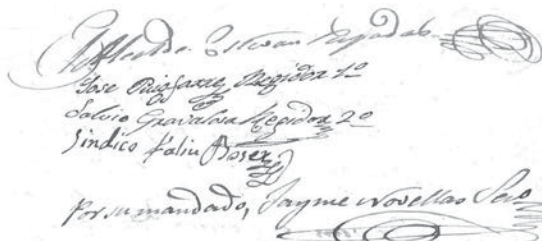 El Alcalde Estevan Pujadas
Jose Puigsarre Regidor 1º
Salvio Gravalosa Regidor 2º
Sindico Feliu Boser
Por su mandado, Jayme Novellas Sero